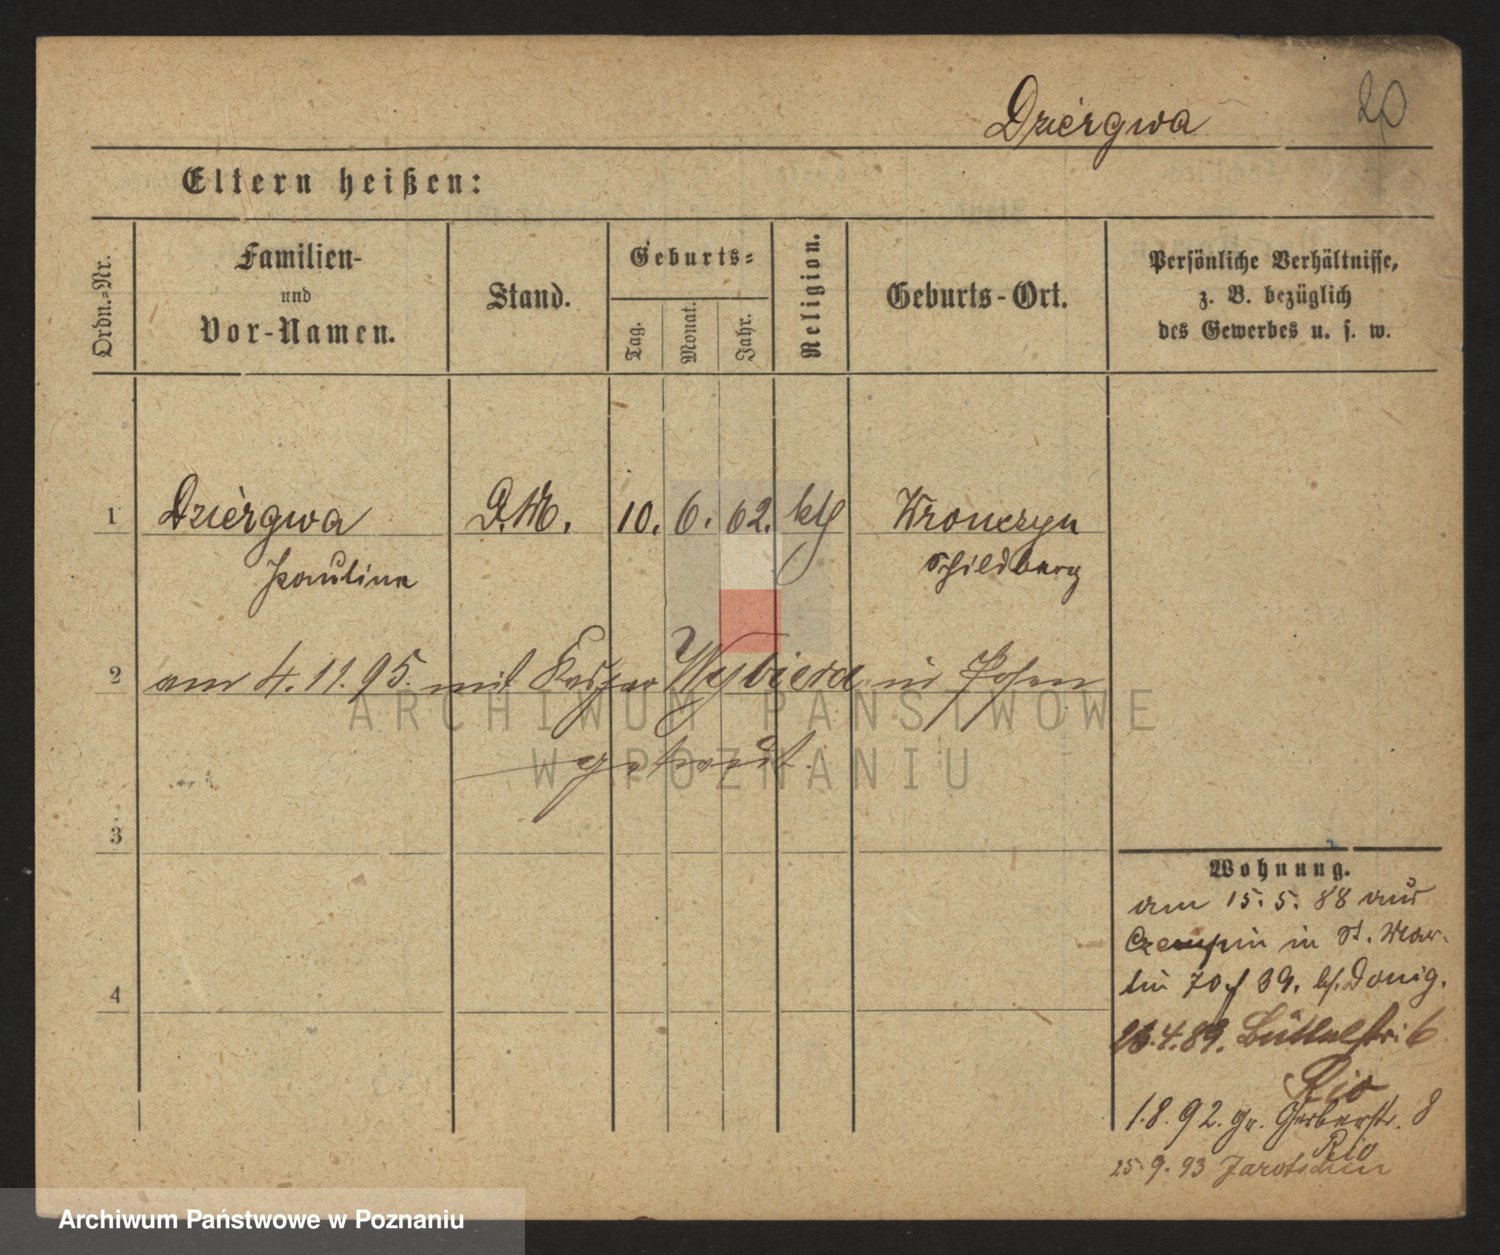 Dziergwa 20
Eltern heißen:
Ordn.-Nr.
Familien-
und
Vor-Namen.
Stand.
Geburts-
Tag.
Monat.
Jahr.
Religion.
Geburts-Ort.
Persönliche Verhältnisse,
z. B. bezüglich
des Gewerbes u. s. w.
1 Dziergwa D.M. 10. 6. 62. kth Wronczyn
Pauline Schildberg
2 am 4.11.95. mit Kaspar Wybiera in Posen
getraut.
3
4
Wohnung.
am 15.5.88 aus
Czempin in St. Mar-
tin 39. b/. Donig.
4.89. Büttelstr. 6
Rio
1.8.92. gr. Gerberstr. 8
Rio
25.9.93 Jarotschin
ARCHIWUM PAŃSTWOWE
W POZNANIU
Archiwum Państwowe w Poznaniu